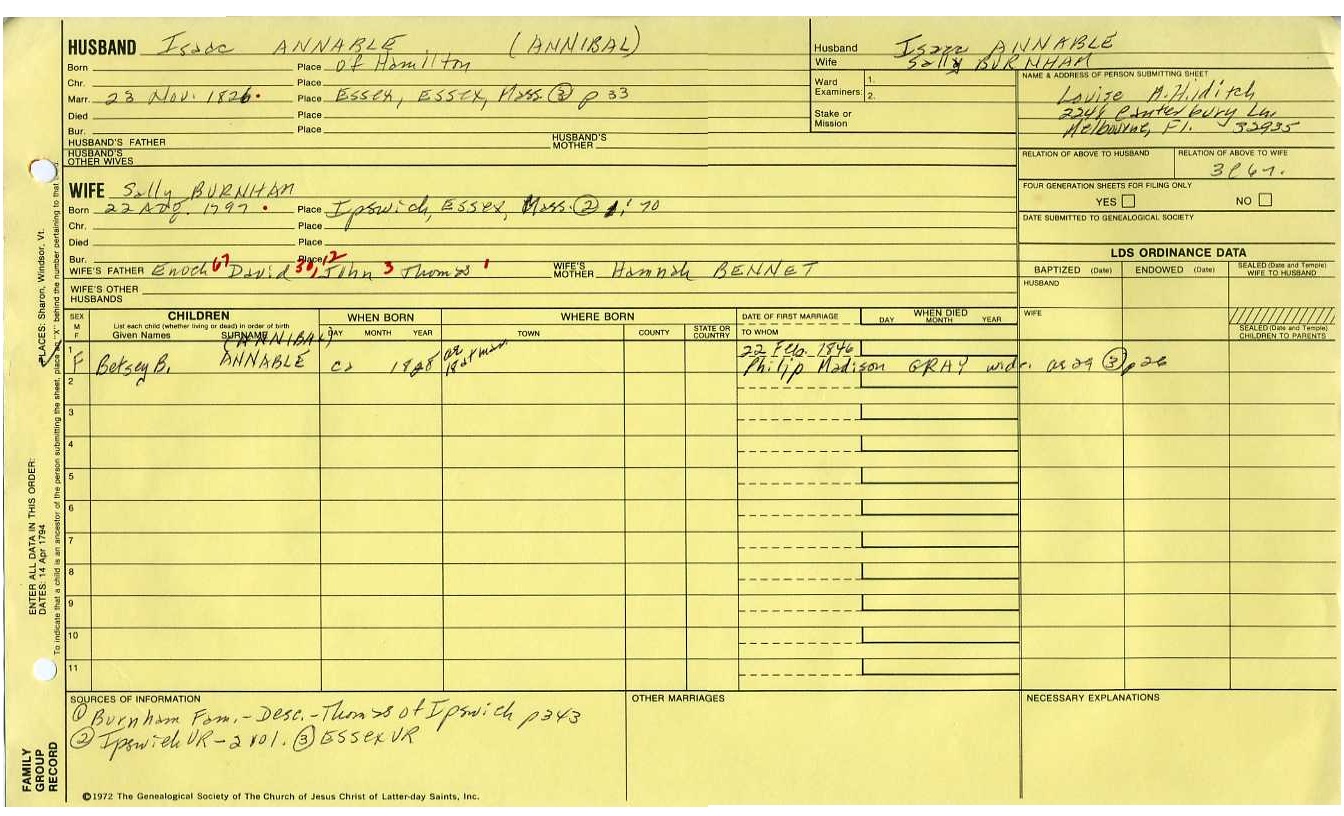 HUSBAND Isaac ANNABLE (ANNIBAL)
Born Place of Hamilton
Chr. Place
Marr. 23 Nov. 1826. Place ESSEX, ESSEX, Mass. ③ p 33
Died Place
Bur. Place
HUSBAND'S FATHER HUSBAND'S MOTHER
HUSBAND'S OTHER WIVES
Husband Isaac ANNABLE
Wife Sally BURNHAM
Ward Examiners: 1. 2.
Stake or Mission
NAME & ADDRESS OF PERSON SUBMITTING SHEET
Louise A. Hilditch
2248 Canterbury Ln
Melbourne, Fl. 32935
RELATION OF ABOVE TO HUSBAND RELATION OF ABOVE TO WIFE
FOUR GENERATION SHEETS FOR FILING ONLY
YES NO
DATE SUBMITTED TO GENEALOGICAL SOCIETY
WIFE Sally BURNHAM
Born 22 Aug. 1797. Place Ipswich, Essex, Mass. ② 1:70
Chr. Place
Died Place
Bur. Place
WIFE'S FATHER Enoch 67 David 30, 12 John 3 Thomas 1 WIFE'S MOTHER Hannah BENNET
WIFE'S OTHER HUSBANDS
LDS ORDINANCE DATA
BAPTIZED (Date) ENDOWED (Date) SEALED (Date and Temple) WIFE TO HUSBAND
HUSBAND
WIFE
SEALED (Date and Temple) CHILDREN TO PARENTS
SEX M F CHILDREN WHEN BORN WHERE BORN DATE OF FIRST MARRIAGE WHEN DIED
List each child (whether living or dead) in order of birth
Given Names SURNAME DAY MONTH YEAR TOWN COUNTY STATE OR COUNTRY TO WHOM DAY MONTH YEAR
(ANNIBAL)
1 F Betsey B. ANNABLE ca 1828 22 Feb. 1846
Philip Madison GRAY widr. as 29 ③ p 26
2
3
4
5
6
7
8
9
10
11
SOURCES OF INFORMATION OTHER MARRIAGES NECESSARY EXPLANATIONS
① Burnham Fam. - Desc. - Thomas of Ipswich p 343
② Ipswich VR - 2 vol. ③ Essex VR
©1972 The Genealogical Society of The Church of Jesus Christ of Latter-day Saints, Inc.
FAMILY GROUP RECORD
ENTER ALL DATA IN THIS ORDER:
DATES: 14 Apr 1794
PLACES: Sharon, Windsor, Vt.
To indicate that a child is an ancestor of the person submitting the sheet, place an "X" behind the number pertaining to that